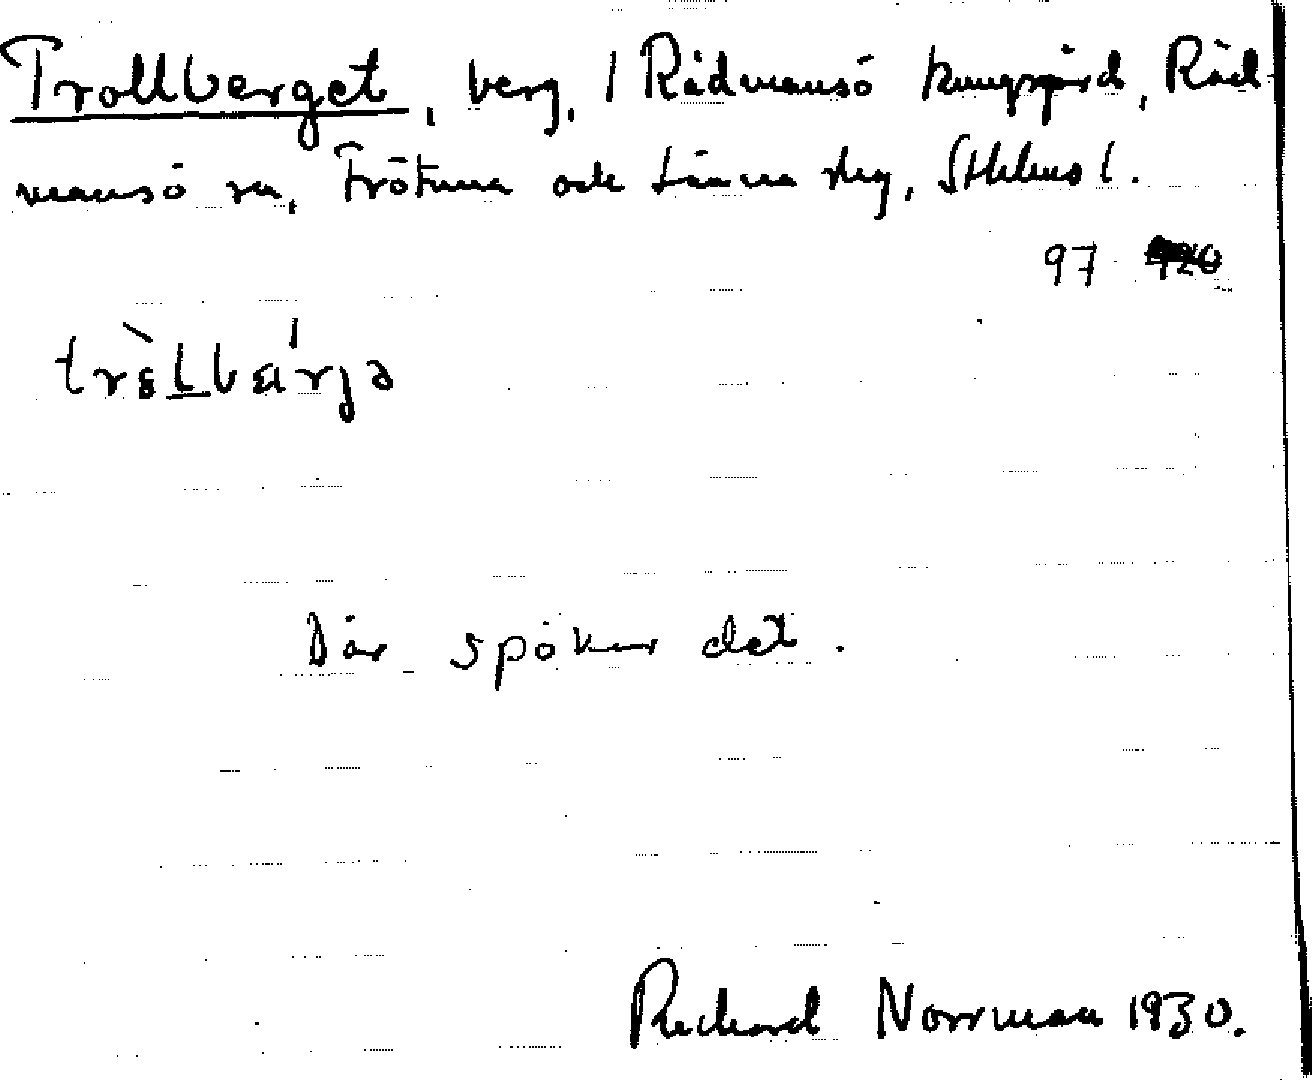 Trollberget, berg, / Rådmansö kungsgård, Råd-
mansö sn, Frötuna och Länna skg, Sthlms l.
97
Där spökar det.
Richard Norrman 1930.